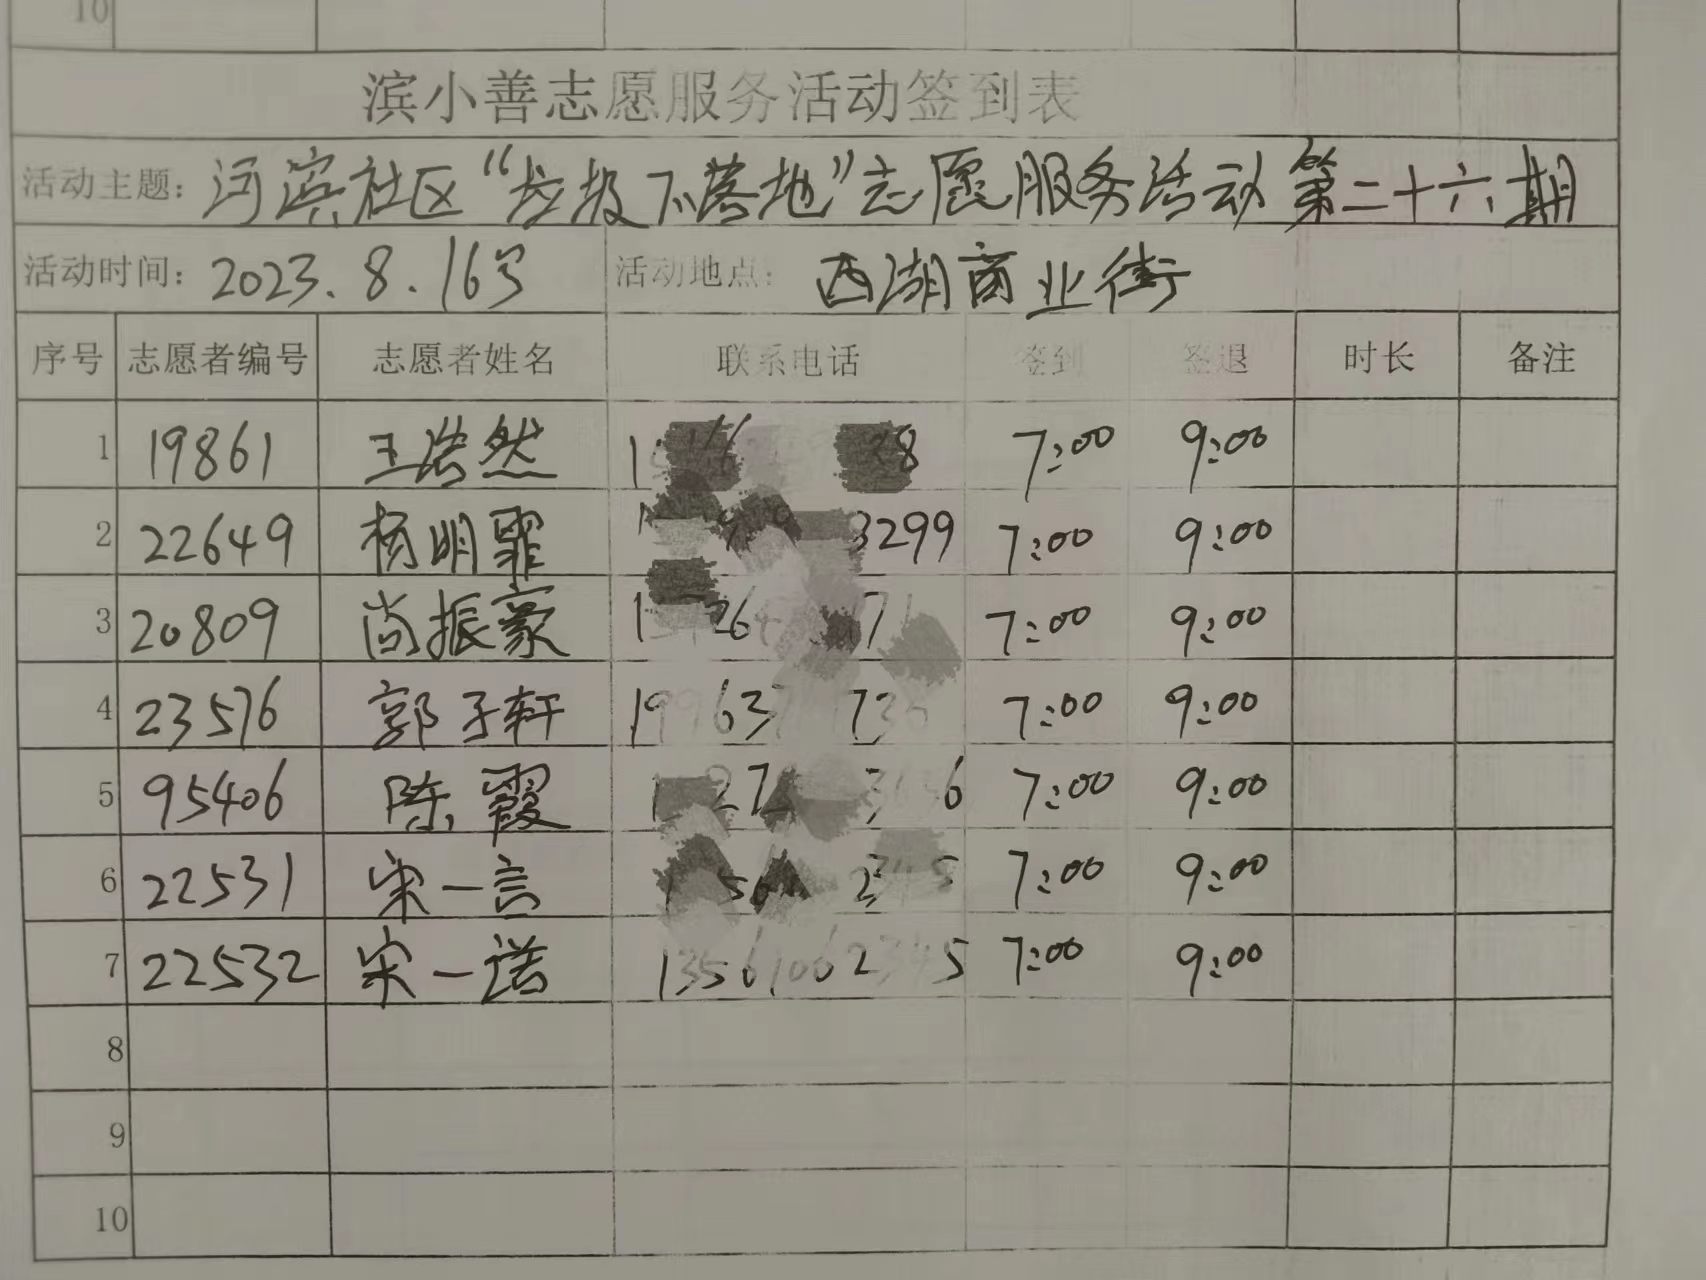 10
滨小善志愿服务活动签到表
活动主题：河滨社区“垃圾不落地”志愿服务活动第二十六期
活动时间：2023.8.16号 活动地点：西湖商业街
序号 志愿者编号 志愿者姓名 联系电话 签到 签退 时长 备注
1 19861 王浩然 7:00 9:00
2 22649 杨明霏 3299 7:00 9:00
3 20809 尚振豪 7:00 9:00
4 23576 郭子轩 7:00 9:00
5 95406 陈霞 7:00 9:00
6 22531 宋一言 7:00 9:00
7 22532 宋一诺 7:00 9:00
8
9
10